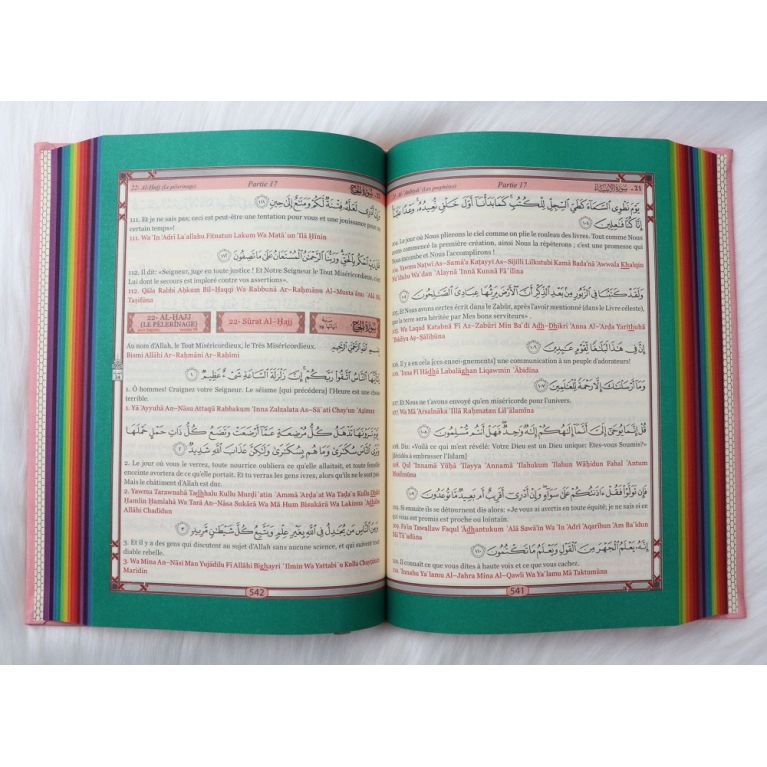 21- Al-'Anbiyâ' (Les prophètes)
Partie 17
21- سورة الأنبياء
يَوْمَ نَطْوِي السَّمَاءَ كَطَيِّ السِّجِلِّ لِلْكُتُبِ كَمَا بَدَأْنَا أَوَّلَ خَلْقٍ نُّعِيدُهُ وَعْدًا عَلَيْنَا
إِنَّا كُنَّا فَاعِلِينَ ١٠٤
104. Le jour où Nous plierons le ciel comme on plie le rouleau des livres. Tout comme Nous
avons commencé la première création, ainsi Nous la répéterons ; c'est une promesse qui
Nous incombe et Nous l'accomplirons !
104. Yawma Naţwī As-Samā'a Kaţayyi As-Sijilli Lilkutubi Kamā Bada'nā 'Awwala Khalqin
Nu`īduhu Wa`dan `Alaynā 'Innā Kunnā Fā`ilīna
وَلَقَدْ كَتَبْنَا فِي الزَّبُورِ مِن بَعْدِ الذِّكْرِ أَنَّ الْأَرْضَ يَرِثُهَا عِبَادِيَ الصَّالِحُونَ ١٠٥
105. Et Nous avons certes écrit dans le Zabūr, après l'avoir mentionné (dans le Livre céleste),
que la terre sera héritée par Mes bons serviteurs».
105. Wa Laqad Katabnā Fī Az-Zabūri Min Ba`di Adh-Dhikri 'Anna Al-'Arđa Yarithuhā
`Ibādiya Aş-Şāliĥūna
إِنَّ فِي هَذَا لَبَلَاغًا لِّقَوْمٍ عَابِدِينَ ١٠٦
106. Il y a en cela [ces enseignements] une communication à un peuple d'adorateurs!
106. 'Inna Fī Hādhā Labalāghan Liqawmin `Ābidīna
وَمَا أَرْسَلْنَاكَ إِلَّا رَحْمَةً لِّلْعَالَمِينَ ١٠٧
107. Et Nous ne t'avons envoyé qu'en miséricorde pour l'univers.
107. Wa Mā 'Arsalnāka 'Illā Raĥmatan Lil`ālamīna
قُلْ إِنَّمَا يُوحَى إِلَيَّ أَنَّمَا إِلَهُكُمْ إِلَهٌ وَاحِدٌ فَهَلْ أَنتُم مُّسْلِمُونَ ١٠٨
108. Dis: «Voilà ce qui m'est révélé: Votre Dieu est un Dieu unique; Etes-vous Soumis?»
(décidés à embrasser l'Islam)
108. Qul 'Innamā Yūĥá 'Ilayya 'Annamā 'Ilahukum 'Ilahun Wāĥidun Fahal 'Antum
Muslimūna
فَإِن تَوَلَّوْا فَقُلْ آذَنتُكُمْ عَلَى سَوَاءٍ وَإِنْ أَدْرِي أَقَرِيبٌ أَم بَعِيدٌ مَّا تُوعَدُونَ ١٠٩
109. Si ensuite ils se détournent dis alors: «Je vous ai avertis en toute équité; je ne sais si ce
qui vous est promis est proche ou lointain.
109. Fa'in Tawallaw Faqul 'Ādhantukum `Alá Sawā'in Wa 'In 'Adrī 'Aqarībun 'Am Ba`īdun
Mā Tū`adūna
إِنَّهُ يَعْلَمُ الْجَهْرَ مِنَ الْقَوْلِ وَيَعْلَمُ مَا تَكْتُمُونَ ١١٠
110. Il connaît ce que vous dites à haute voix et ce que vous cachez.
110. 'Innahu Ya`lamu Al-Jahra Mina Al-Qawli Wa Ya`lamu Mā Taktumūna
541
22- Al-Hajj (Le pèlerinage)
Partie 17
22- سورة الحج
وَإِنْ أَدْرِي لَعَلَّهُ فِتْنَةٌ لَّكُمْ وَمَتَاعٌ إِلَى حِينٍ ١١١
111. Et je ne sais pas; ceci est peut-être une tentation pour vous et une jouissance pour un
certain temps!
111. Wa 'In 'Adrī La`allahu Fitnatun Lakum Wa Matā`un 'Ilá Ĥīnin
قَالَ رَبِّ احْكُم بِالْحَقِّ وَرَبُّنَا الرَّحْمَنُ الْمُسْتَعَانُ عَلَى مَا تَصِفُونَ ١١٢
112. Il dit: «Seigneur, juge en toute justice ! Et Notre Seigneur le Tout Miséricordieux, c'est
Lui dont le secours est imploré contre vos assertions».
112. Qāla Rabbi Aĥkum Bil-Ĥaqqi Wa Rabbunā Ar-Raĥmānu Al-Musta`ānu `Alá Mā
Taşifūna
22- AL-HAJJ
(LE PÈLERINAGE)
22- Sūrat Al-Ĥajj
سورة الحج
Au nom d'Allah, le Tout Miséricordieux, le Très Miséricordieux.
بِسْمِ اللَّهِ الرَّحْمَنِ الرَّحِيمِ
Bismi Allāhi Ar-Raĥmāni Ar-Raĥīmi
يَا أَيُّهَا النَّاسُ اتَّقُوا رَبَّكُمْ إِنَّ زَلْزَلَةَ السَّاعَةِ شَيْءٌ عَظِيمٌ ١
1. Ô hommes! Craignez votre Seigneur. Le séisme [qui précédera] l'Heure est une chose
terrible.
1. Yā 'Ayyuhā An-Nāsu Attaqū Rabbakum 'Inna Zalzalata As-Sā`ati Shay'un `Ažīmun
يَوْمَ تَرَوْنَهَا تَذْهَلُ كُلُّ مُرْضِعَةٍ عَمَّا أَرْضَعَتْ وَتَضَعُ كُلُّ ذَاتِ حَمْلٍ حَمْلَهَا
وَتَرَى النَّاسَ سُكَارَى وَمَا هُم بِسُكَارَى وَلَكِنَّ عَذَابَ اللَّهِ شَدِيدٌ ٢
2. Le jour où vous le verrez, toute nourrice oubliera ce qu'elle allaitait, et toute femelle
enceinte avortera de ce qu'elle portait. Et tu verras les gens ivres, alors qu'ils ne le sont pas.
Mais le châtiment d'Allah est dur.
2. Yawma Tarawnahā Tadhhalu Kullu Murđi`atin `Ammā 'Arđa`at Wa Tađa`u Kullu Dhāti
Ĥamlin Ĥamlahā Wa Tará An-Nāsa Sukārá Wa Mā Hum Bisukārá Wa Lakinna `Adhāba
Allāhi Shadīdun
وَمِنَ النَّاسِ مَن يُجَادِلُ فِي اللَّهِ بِغَيْرِ عِلْمٍ وَيَتَّبِعُ كُلَّ شَيْطَانٍ مَّرِيدٍ ٣
3. Et il y a des gens qui discutent au sujet d'Allah sans aucune science, et qui suivent tout
diable rebelle.
3. Wa Mina An-Nāsi Man Yujādilu Fī Allāhi Bighayri `Ilmin Wa Yattabi`u Kulla Shayţānin
Marīdin
542